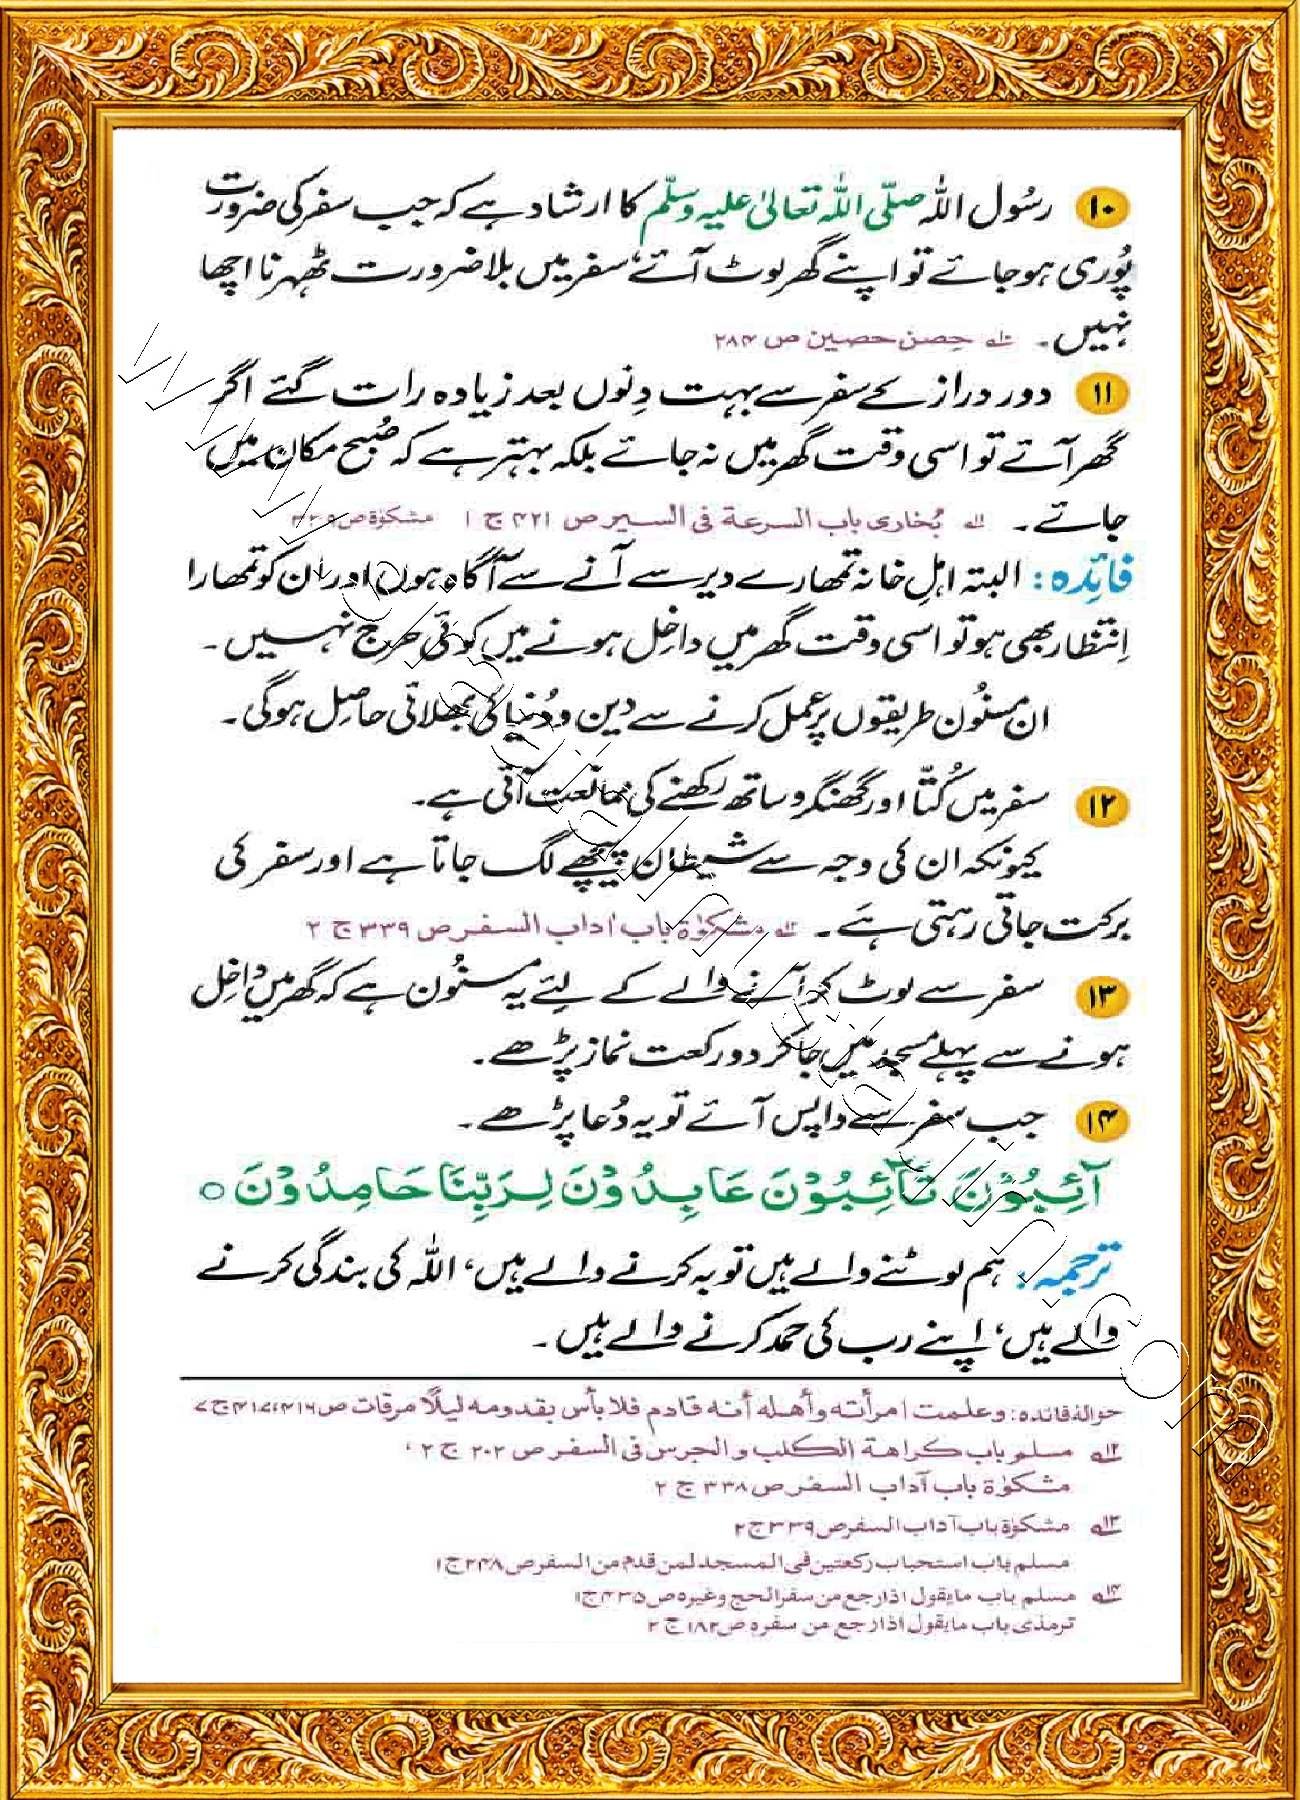 ۱۰ رسُول اللہ صلّی اللہ تعالیٰ علیہ وسلّم کا ارشاد ہے کہ جب سفر کی ضرورت
پُوری ہو جائے تو اپنے گھر لوٹ آئے، سفر میں بلا ضرورت ٹھہرنا اچھا
نہیں۔ ۱۰؎ حِصن حصین ص ۲۸۴
۱۱ دور دراز کے سفر سے بہت دِنوں بعد زیادہ رات گئے اگر
گھر آئے تو اسی وقت گھر میں نہ جائے بلکہ بہتر ہے کہ صُبح مکان میں
جائے۔ ۱۱؎ بُخاری باب السرعۃ فی السیر ص ۴۲۱ ج ۱ مشکوٰۃ ص ۳۳۹
فائدہ: البتہ اہلِ خانہ تمھارے دیر سے آنے سے آگاہ ہوں اور ان کو تمھارا
اِنتظار بھی ہو تو اسی وقت گھر میں داخِل ہونے میں کوئی حرج نہیں۔
ان مسنُون طریقوں پر عمل کرنے سے دین و دُنیا کی بھلائی حاصِل ہوگی۔
۱۲ سفر میں کُتّا اور گھنگرو ساتھ رکھنے کی ممانعت آئی ہے۔
کیونکہ ان کی وجہ سے شیطان پیچھے لگ جاتا ہے اور سفر کی
برکت جاتی رہتی ہے۔ ۱۲؎ مشکوٰۃ باب اٰداب السفر ص ۳۳۹ ج ۲
۱۳ سفر سے لوٹ کر آنے والے کے لِئے یہ مسنُون ہے کہ گھر میں داخِل
ہونے سے پہلے مسجد میں جا کر دو رکعت نماز پڑھے۔
۱۴ جب سفر سے واپس آئے تو یہ دُعا پڑھے۔
آئِبُوْنَ تَآئِبُوْنَ عَابِدُوْنَ لِرَبِّنَا حَامِدُوْنَ ○
ترجمہ: ہم لوٹنے والے ہیں توبہ کرنے والے ہیں، اللہ کی بندگی کرنے
والے ہیں، اپنے رب کی حمد کرنے والے ہیں۔
حوالۂ فائدہ: وعلمت امرأته وأهله أنه قادم فلا بأس بقدومه ليلاً مرقات ص ۴۱۶،۴۱۷ ج ۷
۱۲؎ مسلم باب کراهة الکلب و الجرس فی السفر ص ۲۰۲ ج ۲،
مشکوٰۃ باب آداب السفر ص ۳۳۸ ج ۲
۱۳؎ مشکوٰۃ باب آداب السفر ص ۳۳۹ ج ۲
مسلم باب استحباب رکعتین فی المسجد لمن قدم من السفر ص ۲۴۸ ج ۱
۱۴؎ مسلم باب مایقول اذا رجع من سفر الحج وغیرہ ص ۴۳۵ ج ۱
ترمذی باب مایقول اذا رجع من سفرہ ص ۱۸۲ ج ۲